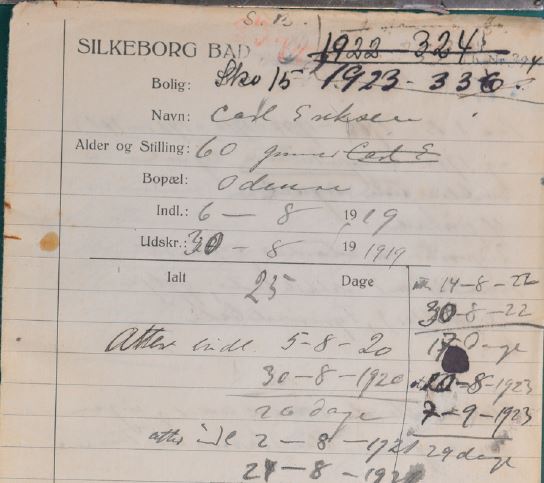 SILKEBORG BAD
1922 - 324
1923 - 336
Bolig: Sko 15
Navn: Carl Eriksen
Alder og Stilling: 60
Bopæl: Odense
Indl.: 6 - 8 1919
Udskr.: 30 - 8 19 1919
Ialt 25 Dage
14-8-22
30-8-22
17 Dage
10-8-1923
7-9-1923
29 dage
Atter indl. 5-8-20
30-8-1920
26 dage
atter indl 2-8-1921